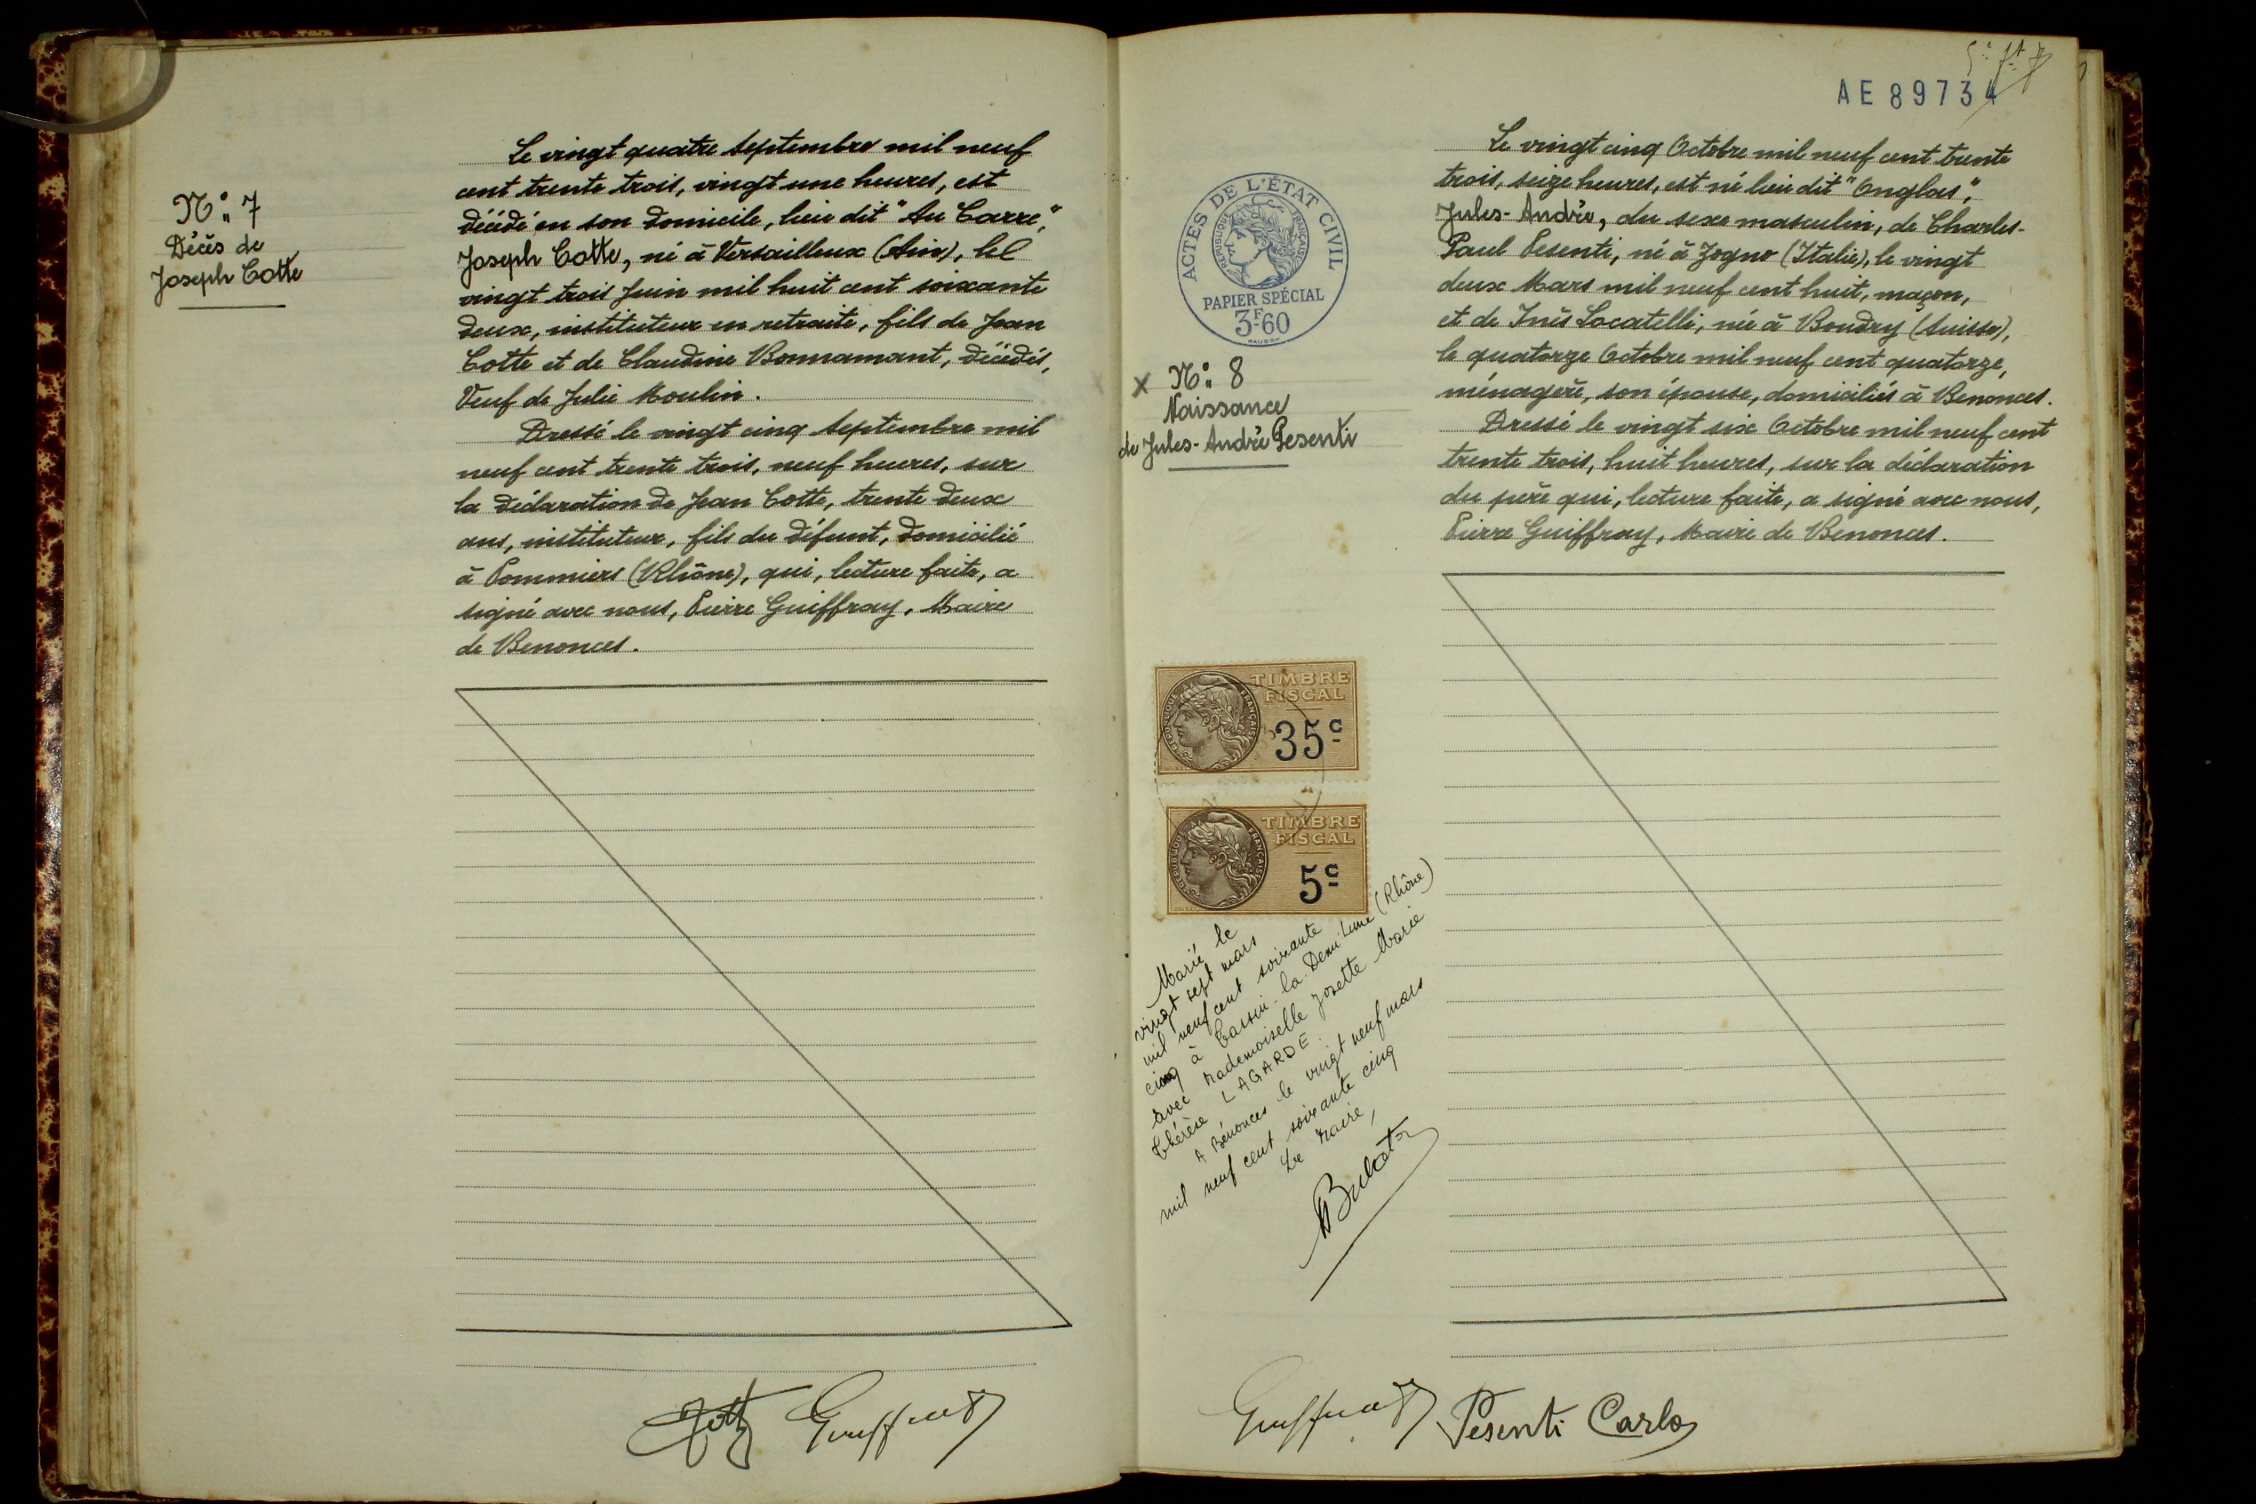 N° 7
Décès de
Joseph Cotte
Le vingt quatre Septembre mil neuf
cent trente trois, vingt une heures, est
décédé en son domicile, lieu dit "Au Carre",
Joseph Cotte, né à Versailleux (Ain), le
vingt trois Juin mil huit cent soixante
deux, instituteur en retraite, fils de Jean
Cotte et de Claudine Bonnamant, décédés,
Veuf de Julie Moulin.
Dressé le vingt cinq Septembre mil
neuf cent trente trois, neuf heures, sur
la déclaration de Jean Cotte, trente deux
ans, instituteur, fils du défunt, domicilié
à Pommiers (Rhône), qui, lecture faite, a
signé avec nous, Pierre Guiffray, Maire
de Benonces.
Cotte Guiffray
AE 89734
ACTES DE L'ÉTAT CIVIL
RÉPUBLIQUE FRANÇAISE
PAPIER SPÉCIAL
3F-60
X N° 8
Naissance
de Jules-André Pesenti
Le vingt cinq Octobre mil neuf cent trente
trois, seize heures, est né lieu dit "Onglas",
Jules-André, du sexe masculin, de Charles-
Paul Pesenti, né à Zogno (Italie), le vingt
deux Mars mil neuf cent huit, maçon,
et de Inès Locatelli, née à Boudry (Suisse),
le quatorze Octobre mil neuf cent quatorze,
ménagère, son épouse, domiciliés à Benonces.
Dressé le vingt six Octobre mil neuf cent
trente trois, huit heures, sur la déclaration
du père qui, lecture faite, a signé avec nous,
Pierre Guiffray, Maire de Benonces.
TIMBRE
FISCAL
35c
RÉPUBLIQUE FRANÇAISE
TIMBRE
FISCAL
5c
RÉPUBLIQUE FRANÇAISE
Marié le
vingt sept mars
mil neuf cent soixante
cinq à Tassin-la-Demi-Lune (Rhône)
avec Mademoiselle Josette Marie
Thérèse LAGARDE.
A Bénonces le vingt neuf mars
mil neuf cent soixante cinq
Le Maire,
Guiffray Pesenti Carlo